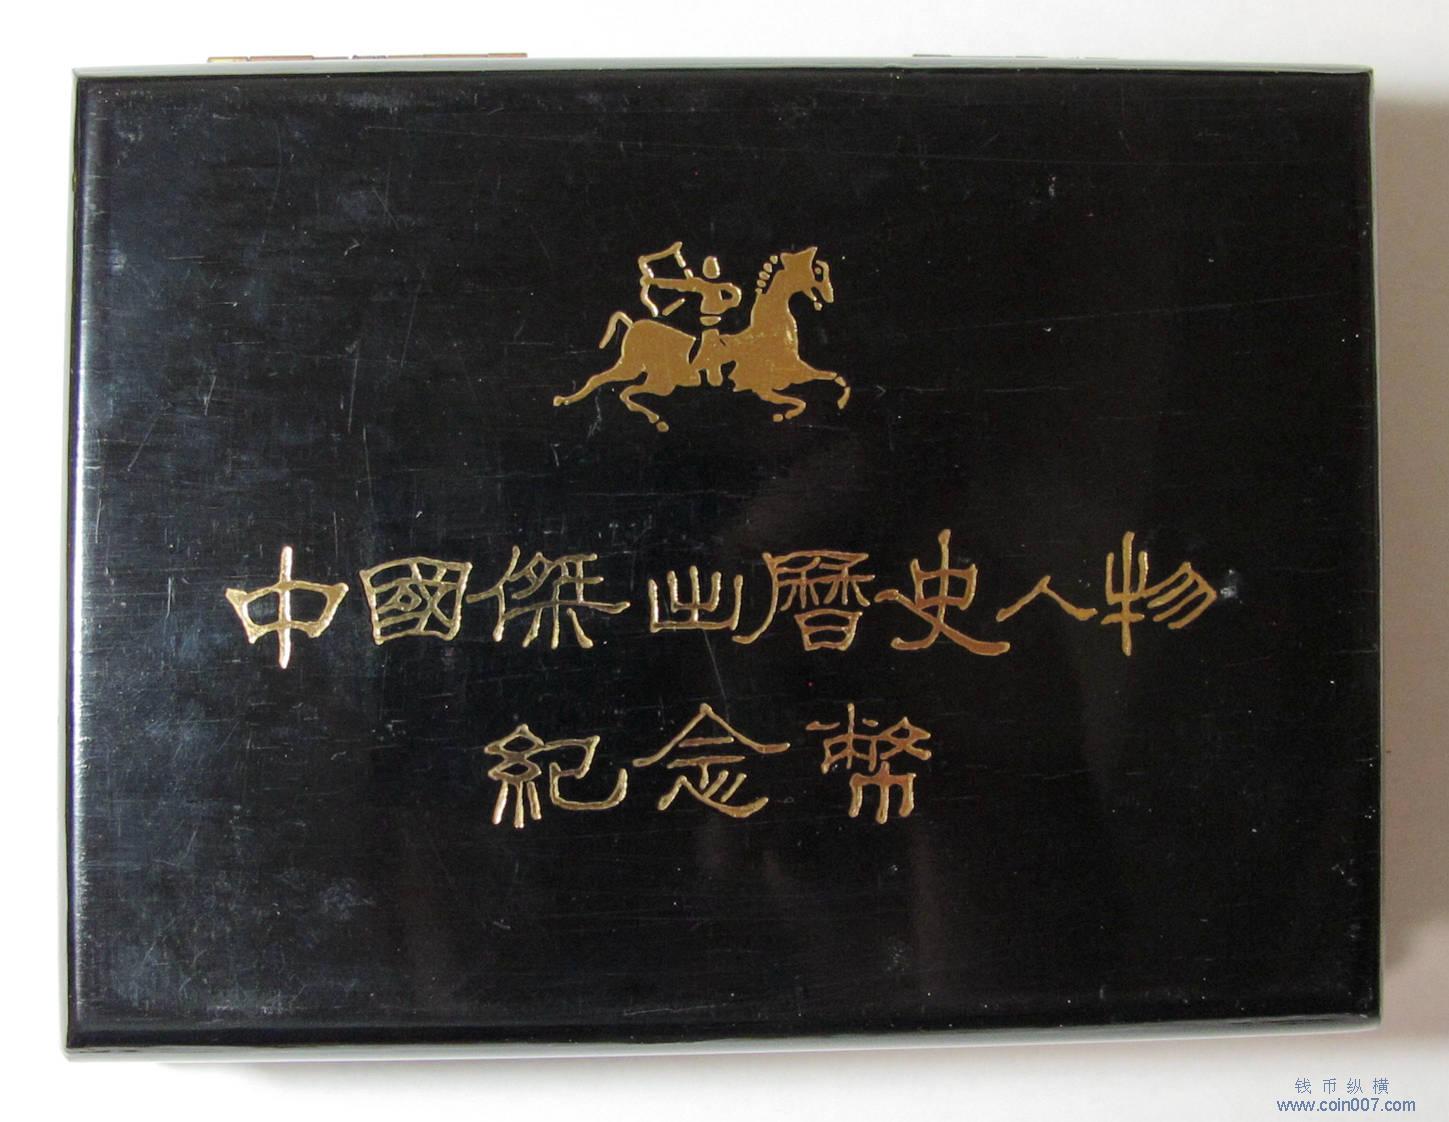 中國傑出曆史人物
紀念幣
钱币纵横
www.coin007.com